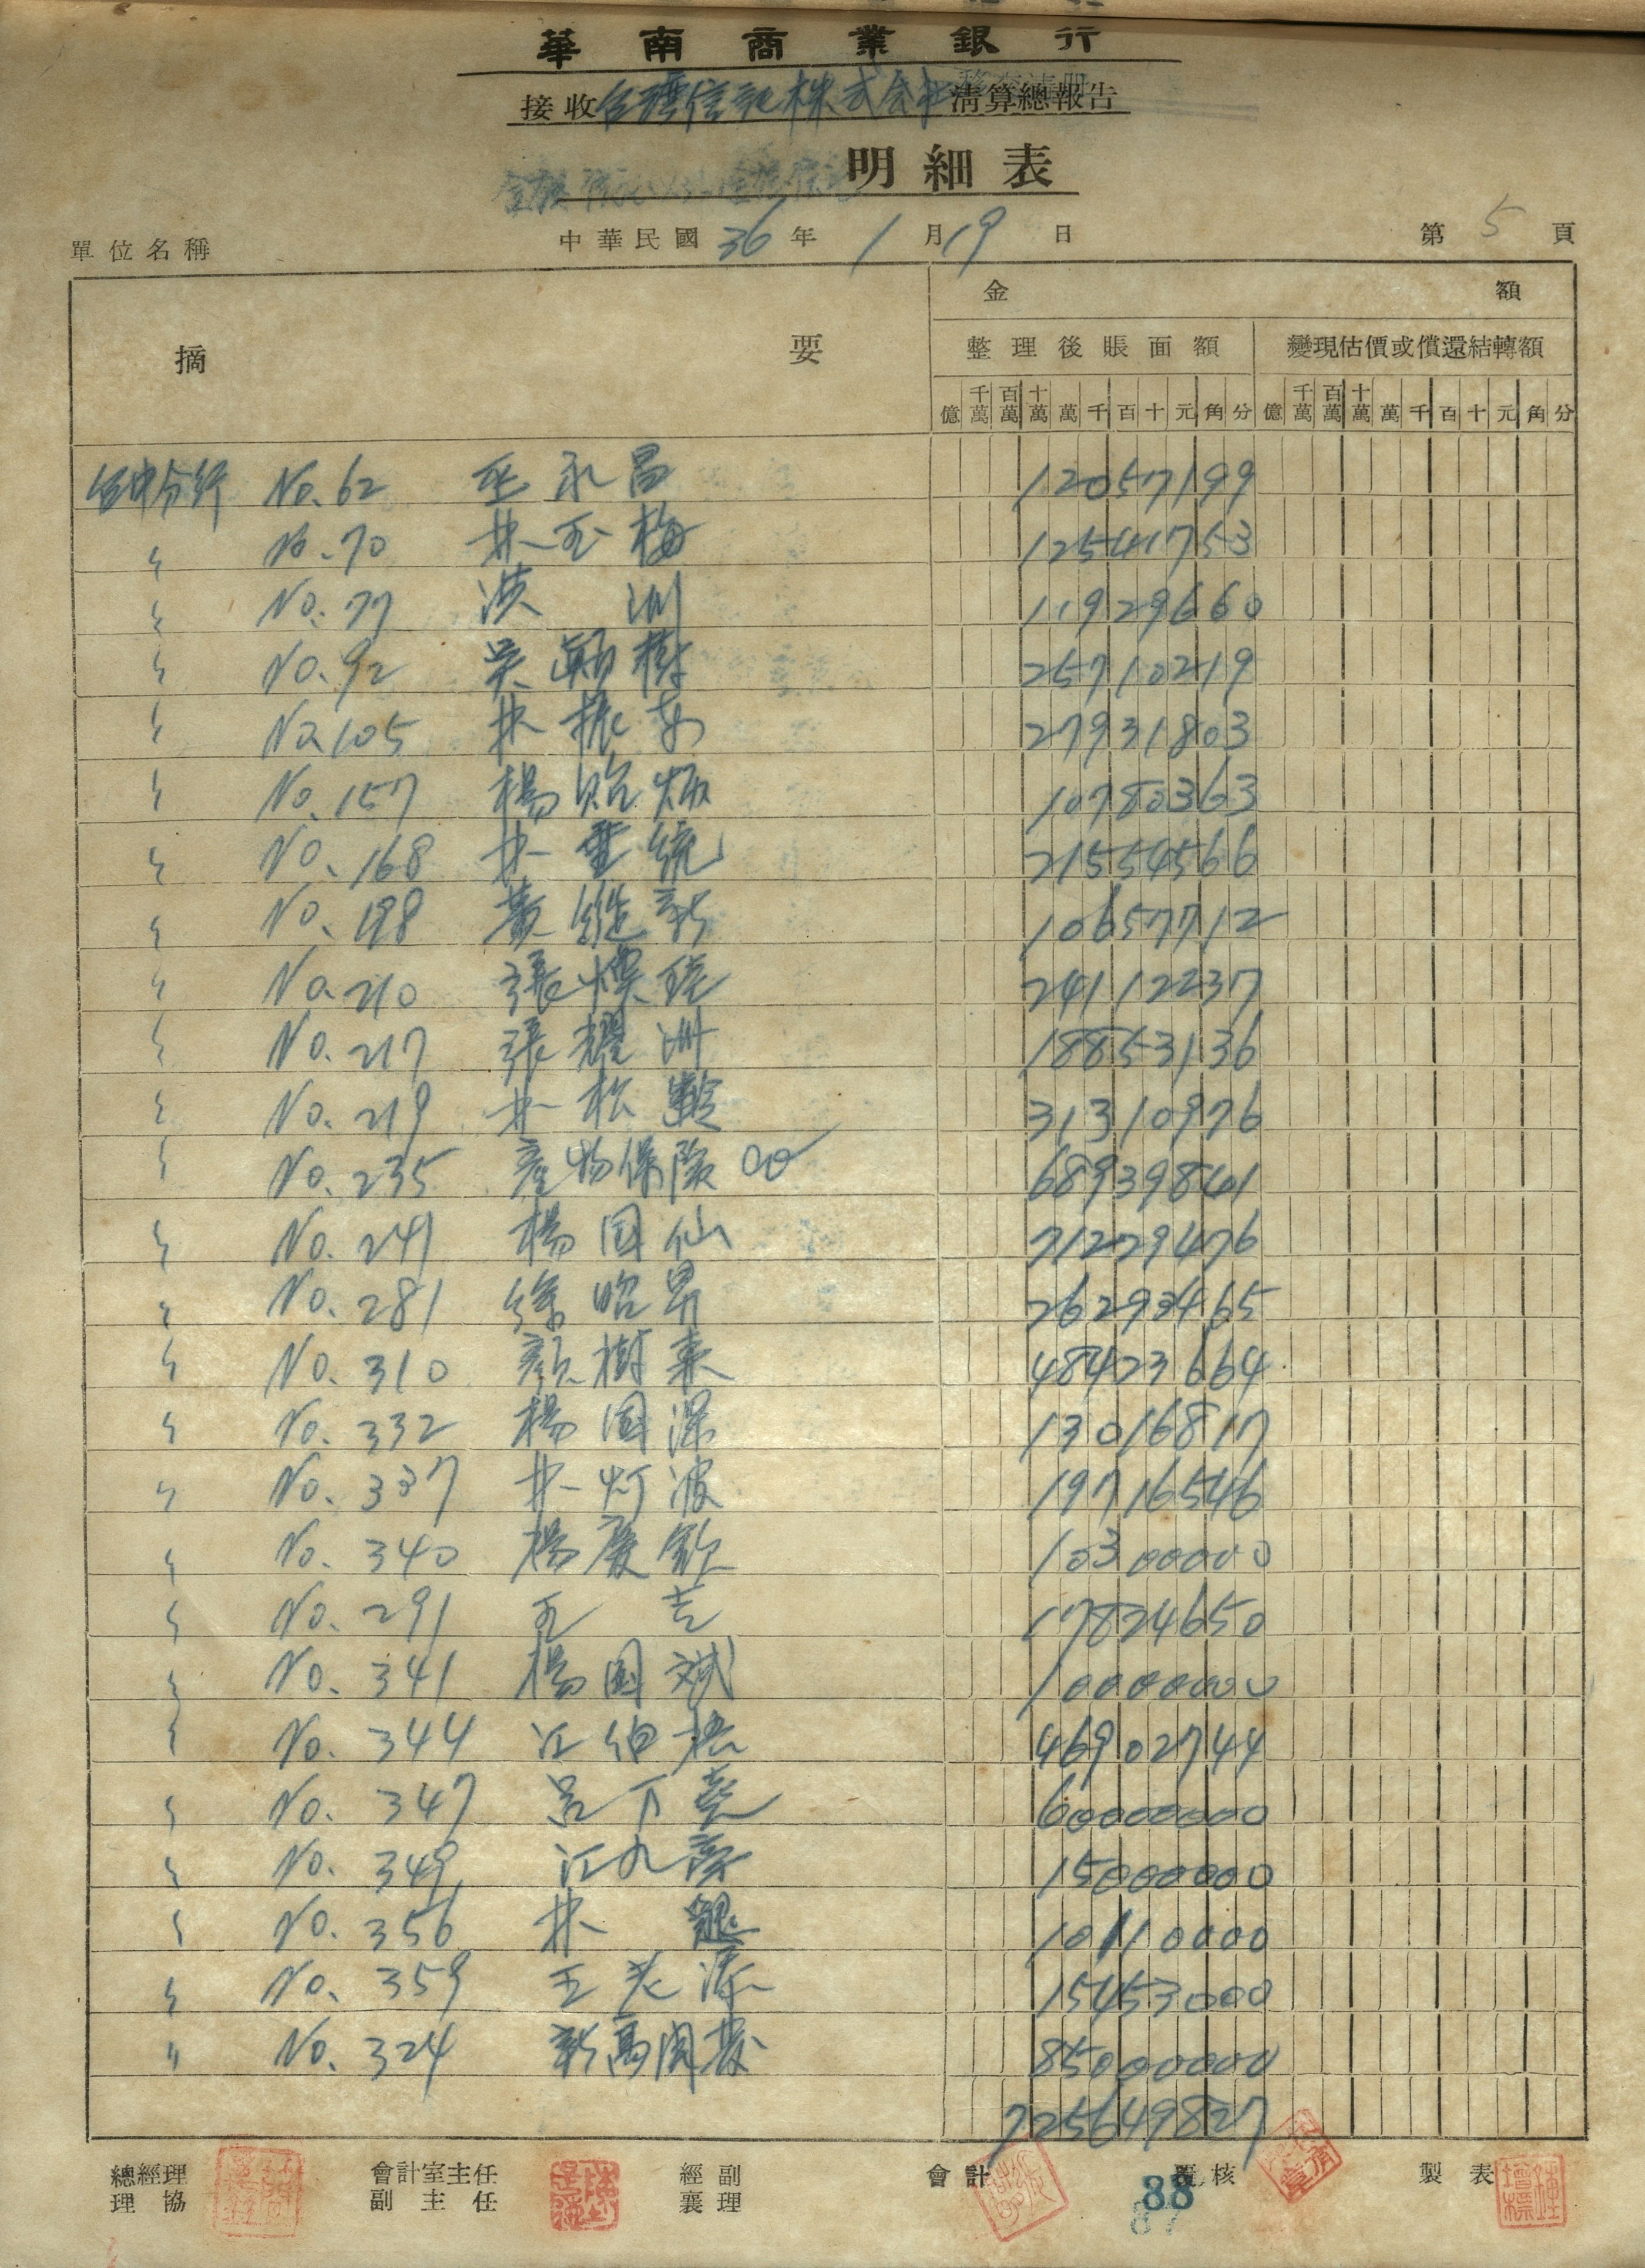 華南商業銀行
接收台灣信託株式会社清算總報告
明細表
單位名稱 中華民國36年1月19日 第5頁
摘要 金額
整理後賬面額 變現估價或償還結轉額
億 千萬 百萬 十萬 萬 千 百 十 元 角 分 億 千萬 百萬 十萬 萬 千 百 十 元 角 分
台中分行 No.62 巫永昌 12057199
〃 No.70 林玉梅 12541753
〃 No.77 洪 洲 11929660
〃 No.92 吳顯樹 25710219
〃 No.105 林振 27931803
〃 No.157 楊貽炳 10780363
〃 No.168 林垂統 21554566
〃 No.198 黃繼新 10657712
〃 No.210 張煥珪 24112237
〃 No.217 張耀洲 18853136
〃 No.219 林松齡 31310976
〃 No.235 產物保險 68939841
〃 No.241 楊国仙 71279476
〃 No.281 徐昭昇 26293465
〃 No.310 顏樹東 48423664
〃 No.332 楊國深 13016817
〃 No.337 林灯波 19716546
〃 No.340 楊慶欽 10300000
〃 No.291 王 吉 17824650
〃 No.341 楊國斌 10000000
〃 No.344 江伯松 46902744
〃 No.347 呂丁尭 60000000
〃 No.349 江九 15000000
〃 No.356 林 10110000
〃 No.359 王 15453000
〃 No.324 新高開發 85000000
725649827
總經理 會計室主任 經副 會計 覆核 製表
協理 副主任 襄理
88
87